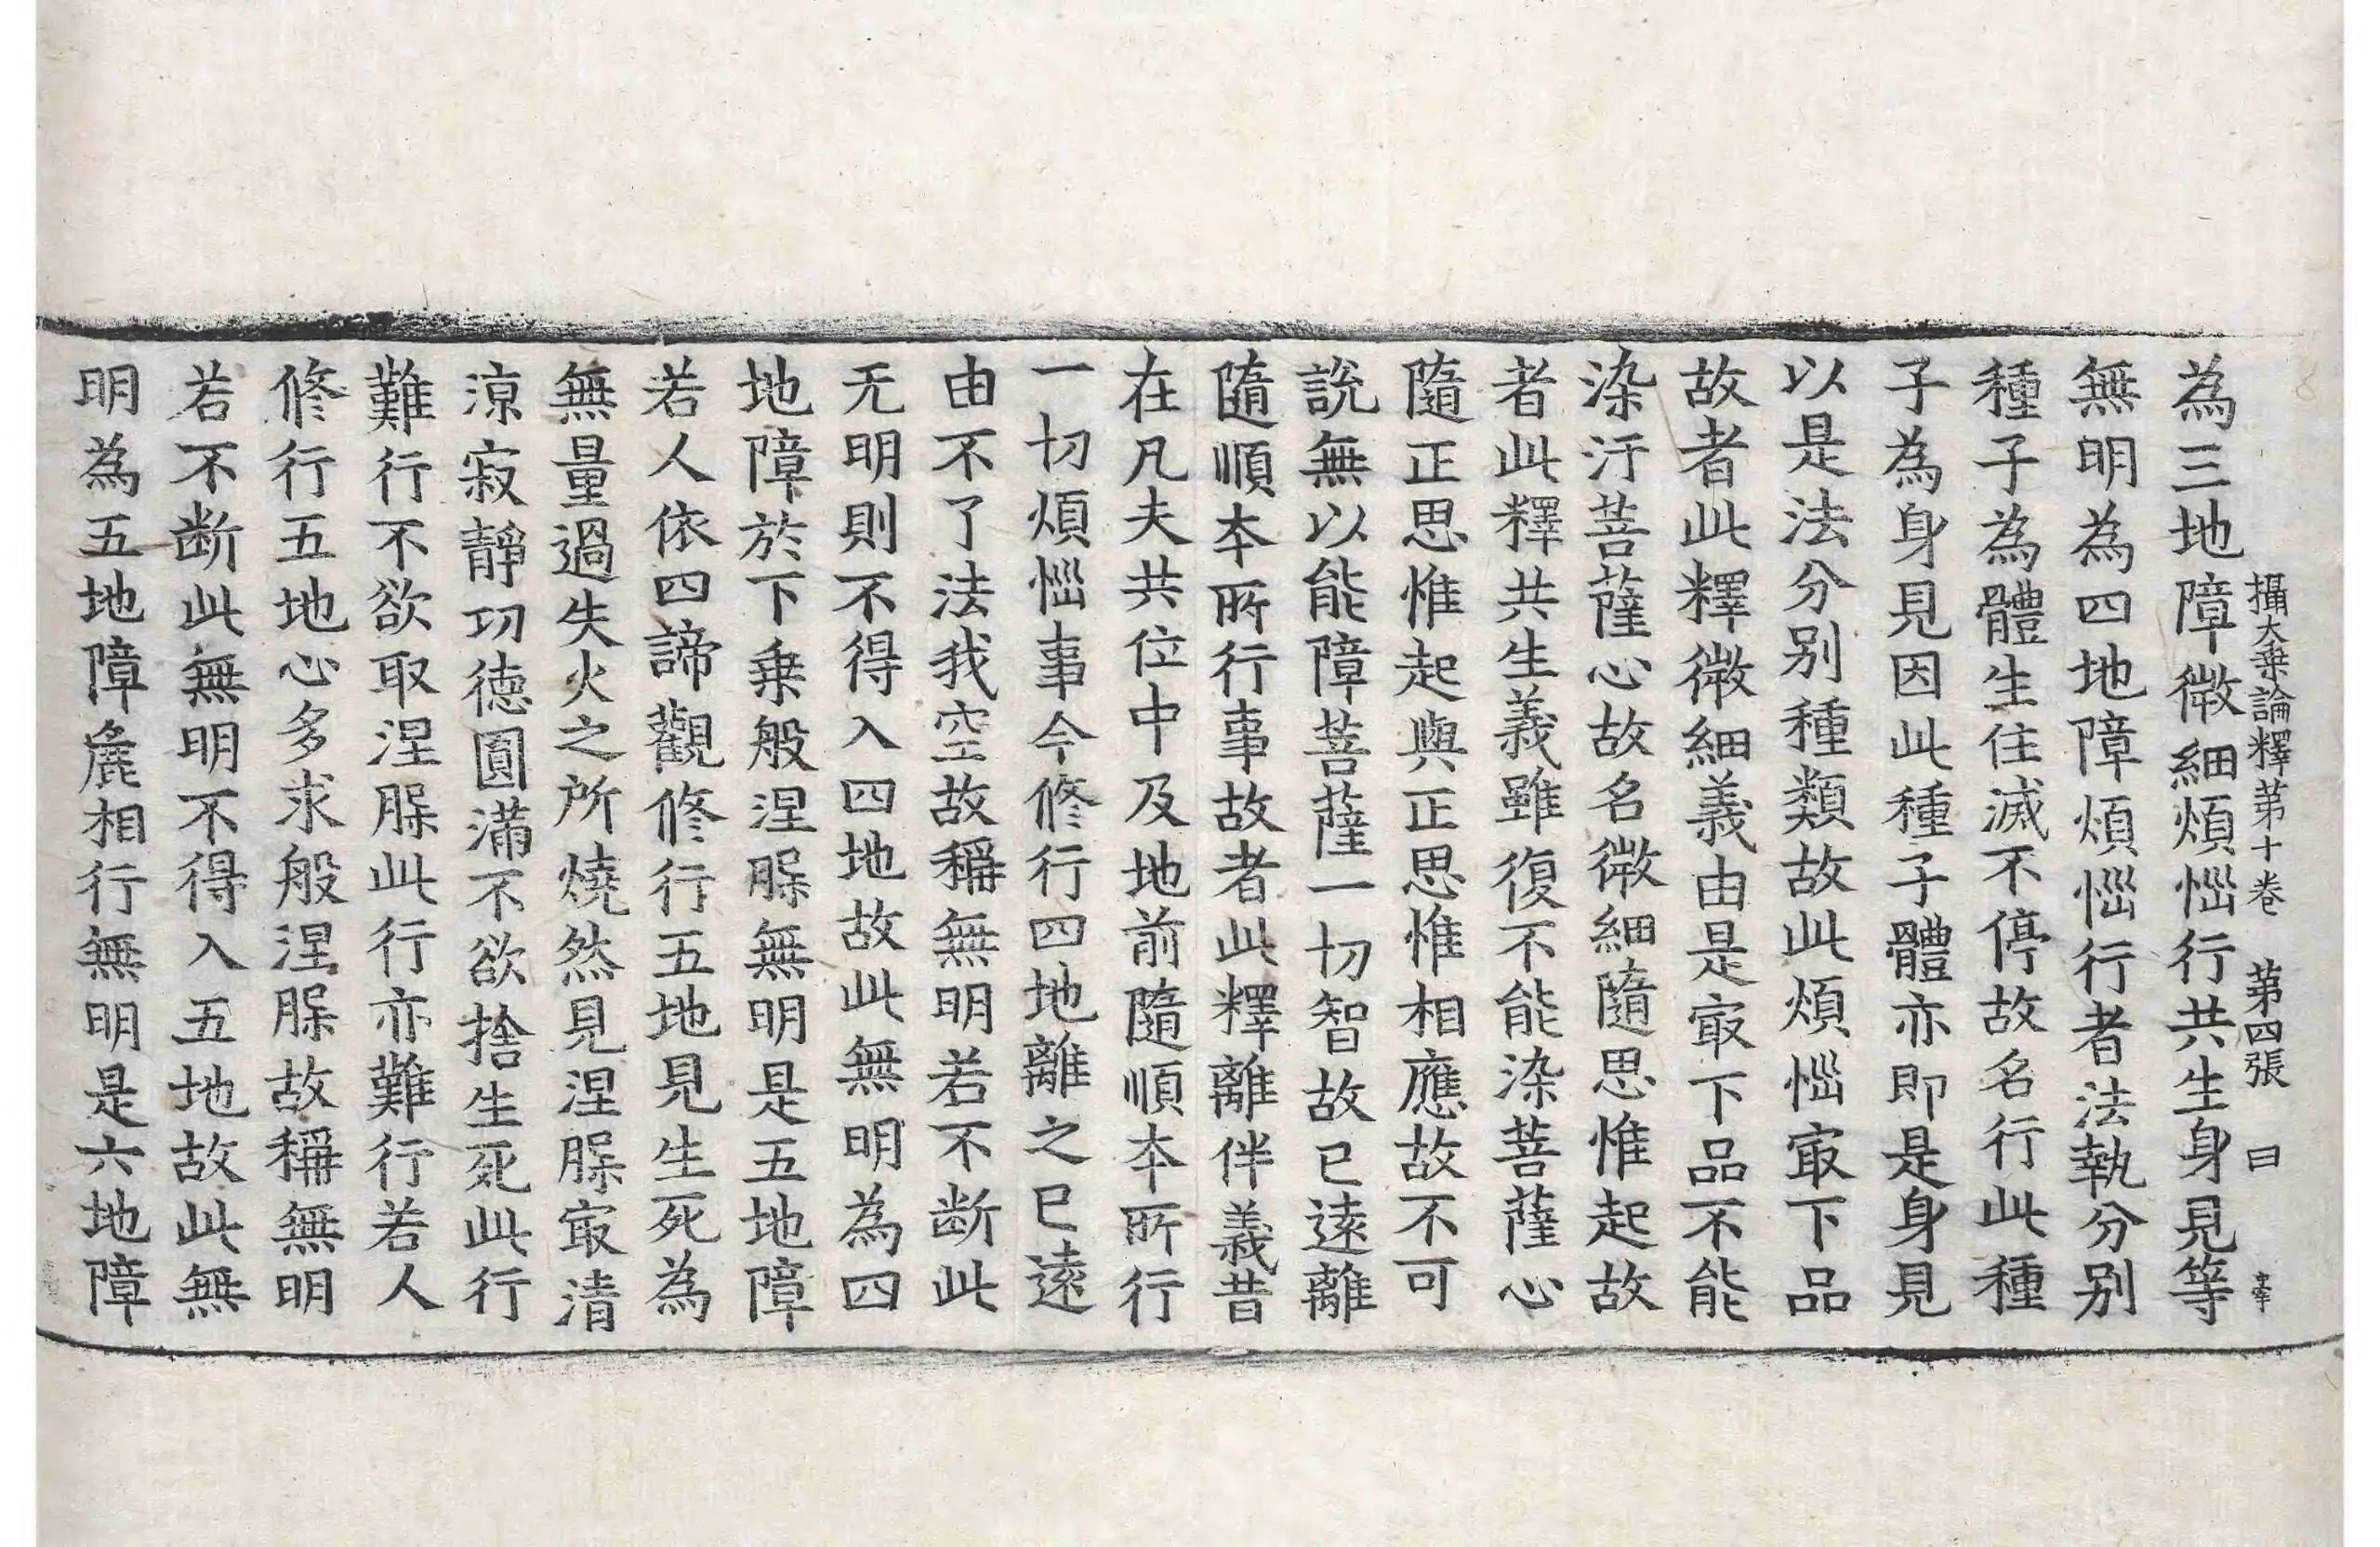 攝大乗論釋第十卷 第四張 曰
為三地障微細煩惱行共生身見等
無明為四地障煩惱行者法執分别
種子為體生住滅不停故名行此種
子為身見因此種子體亦即是身見
以是法分别種類故此煩惱㝡下品
故者此釋微細義由是㝡下品不能
染汙菩薩心故名微細隨思惟起故
者此釋共生義雖復不能染菩薩心
隨正思惟起與正思惟相應故不可
說無以能障菩薩一切智故已遠離
隨順夲所行事故者此釋離伴義昔
在凡夫共位中及地前隨順夲所行
一切煩惱事今修行四地離之已遠
由不了法我空故稱無明若不断此
无明則不得入四地故此無明為四
地障於下乗般涅槃無明是五地障
若人依四諦觀修行五地見生死為
無量過失火之所燒然見涅槃㝡清
涼寂靜功德圓滿不欲捨生死此行
難行不欲取涅槃此行亦難行若人
修行五地心多求般涅槃故稱無明
若不断此無明不得入五地故此無
明為五地障麁相行無明是六地障